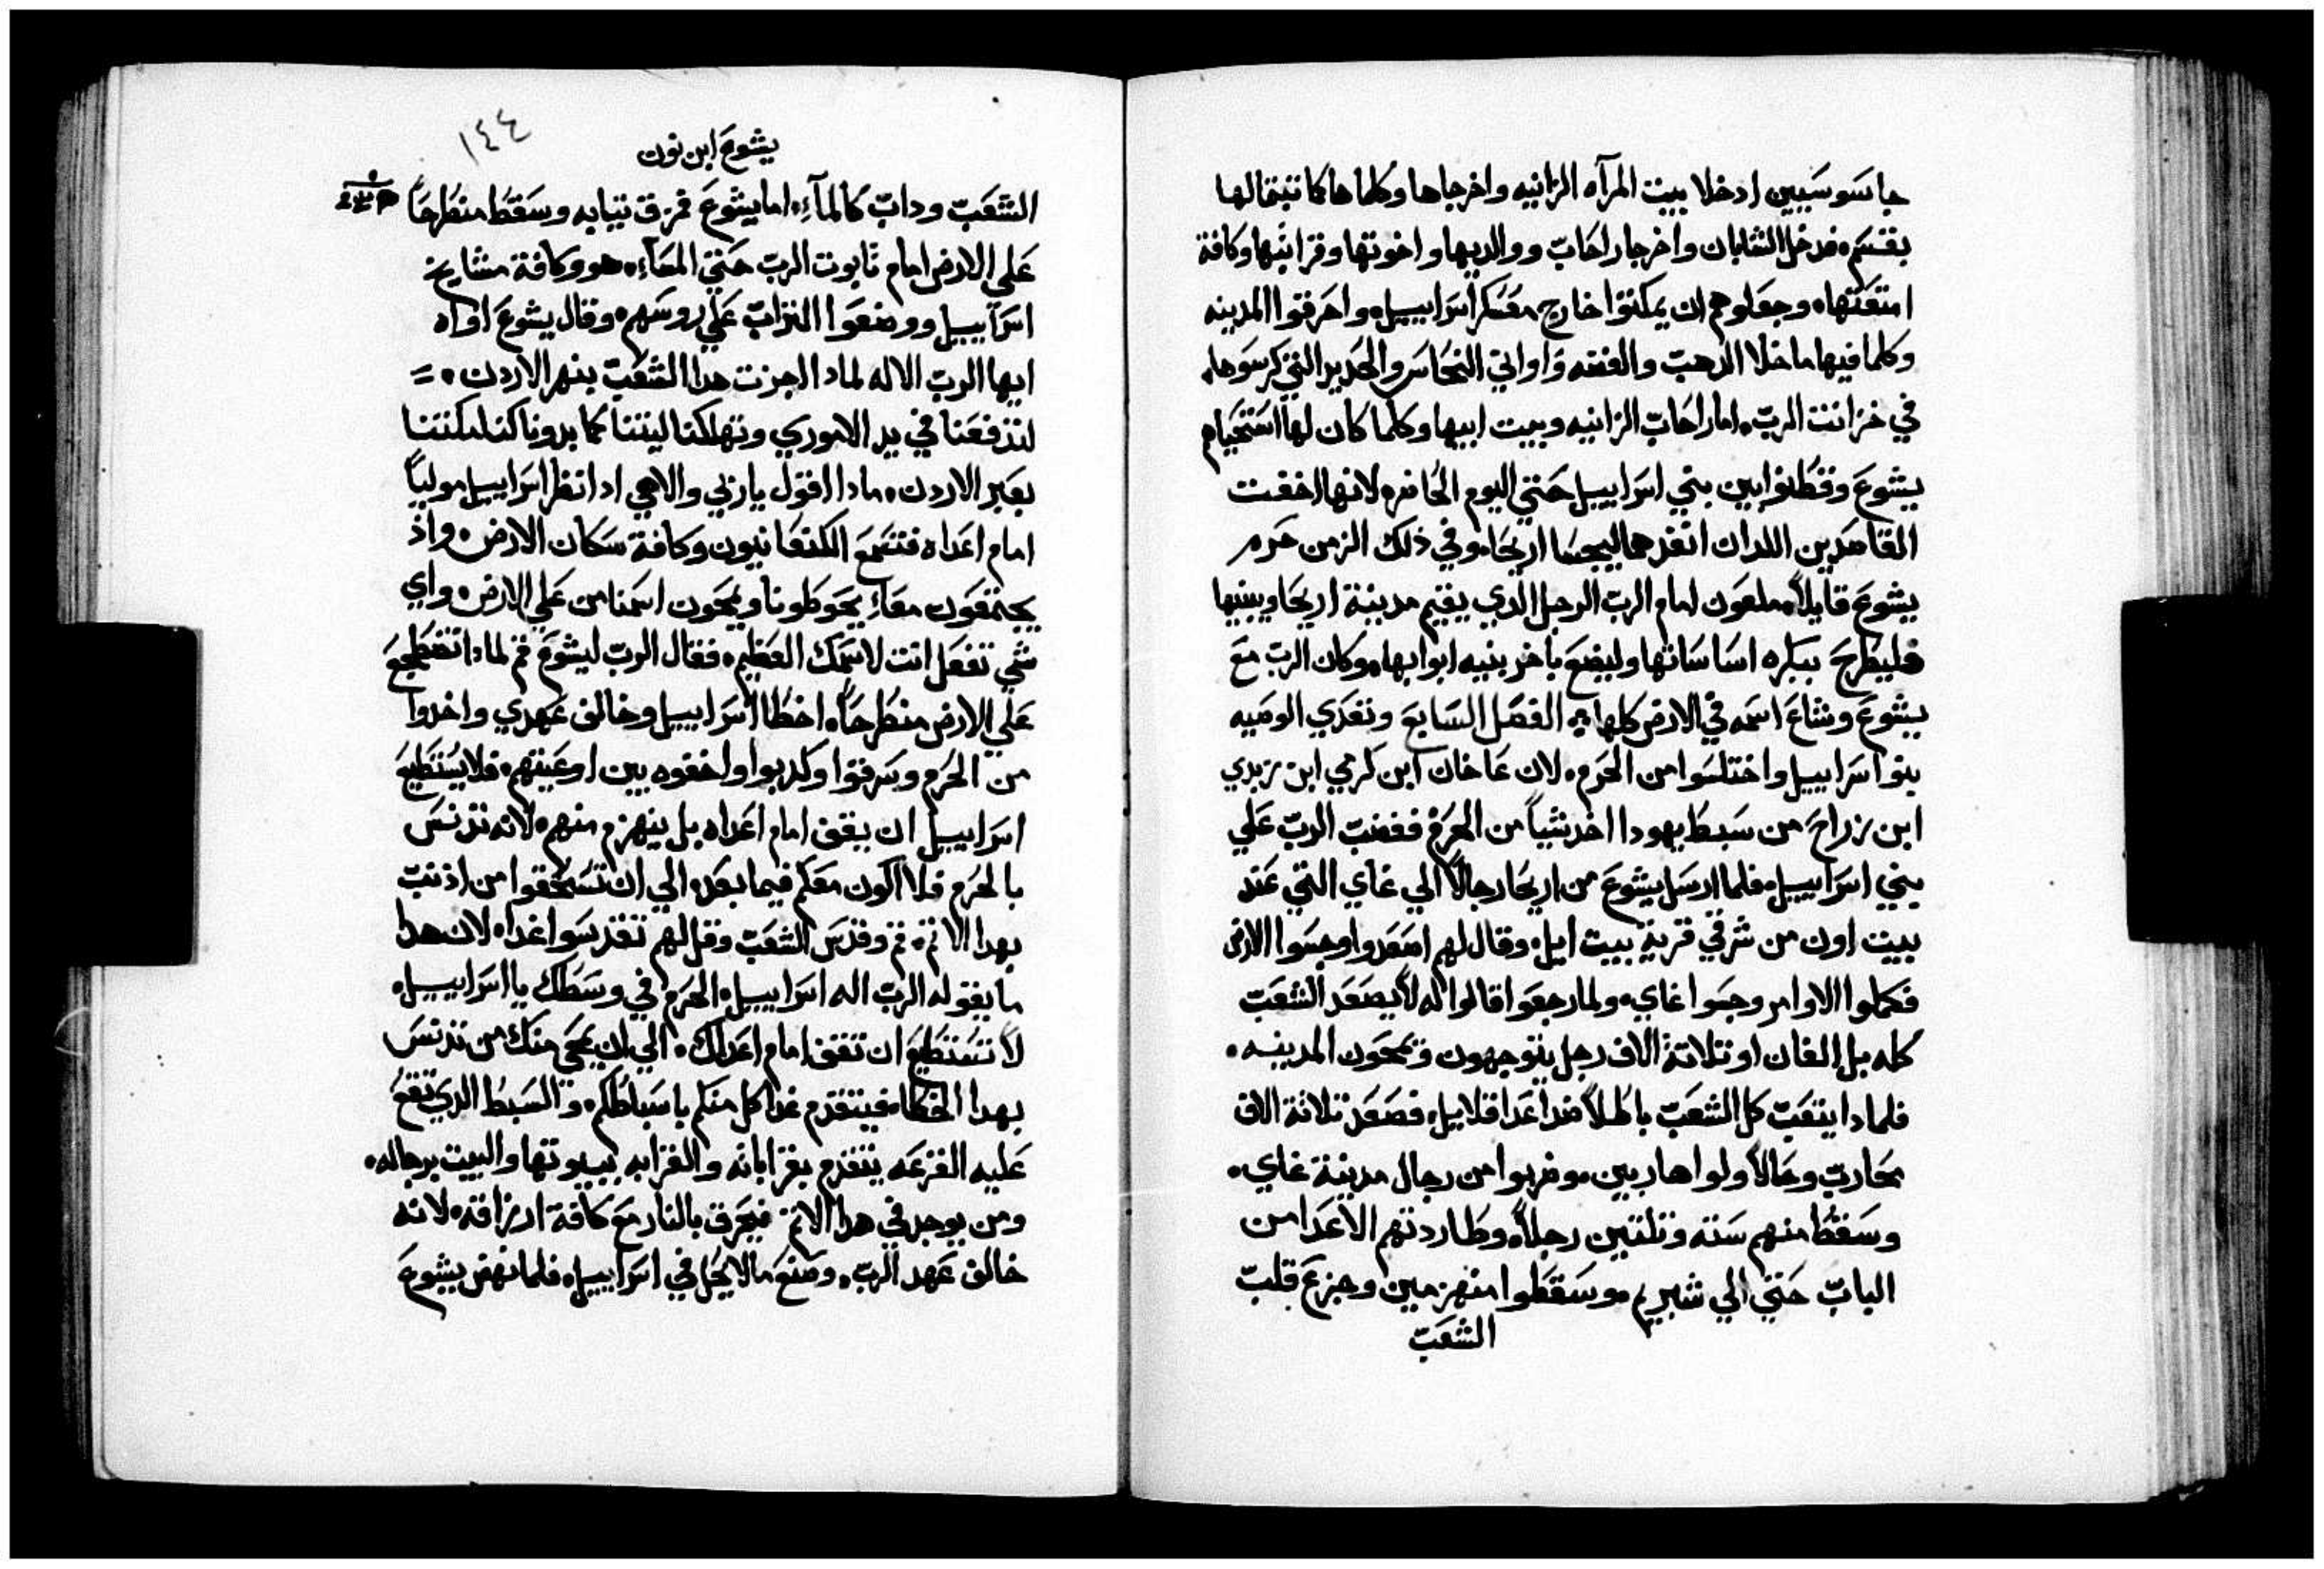 جاسوسيين ادخلا بيت المرآه الزانيه واخرجاها وكلما هاكما تبتمالها
بقسم، فدخل الشابان واخرجا راحاب ووالديها واخوتها وقرابتها وكافة
امتعتها، وجعلوهم ان يمكتوا خارج معسكر اسراييل، واحرقوا المدينه
وكلما فيها ماخلا الدهب والفضه واواني النحاس والحديد التي كرسوها
في خزانت الرب، اما راحاب الزانيه وبيت ابيها وكلما كان لها استحياهم
يشوع وقطنوا بين بني اسراييل حتي اليوم الحاضر، لانها اخفت
القاصدين اللدان انفدهما ليجسا اريحا، وفي ذلك الزمن حرم
يشوع قايلاً، ملعون امام الرب الرجل الدي يقيم مدينة اريحا ويبنيها
فليطرح ببكره اساساتها وليضع باخر بنيه ابوابها، وكان الرب مع
يشوع وشاع اسمه في الارض كلها، الفصل السابع وتعدي الوصيه
بنو اسراييل واختلسوا من الحرم، لان عاخان ابن كرمي ابن زبدي
ابن زراح من سبط يهودا اخد شياً من الحرم فغضب الرب علي
بني اسراييل، فلما ارسل يشوع من اريحا رجالاً الي غاي التي عند
بيت اون من شرقي قرية بيت ايل، وقال لهم اصعدوا وجسوا الارض
فكملوا الاوامر وجسوا غاي، ولما رجعوا قالوا له لا يصعد الشعب
كله بل الفان او تلاتة الاف رجل يتوجهون ويمحون المدينه،
فلمادا يتعب كل الشعب باطلاً ضد اعدا قلايل، فصعد تلاتة الاف
محارب وحالاً ولوا هاربين، وضربوا من رجال مدينة غاي،
وسقط منهم ستة وتلتين رجلاً، وطاردتهم الاعدا من
الباب حتي الي شبريم، وسقطوا منهزمين وجزع قلب
الشعب
يشوع ابن نون
١٤٤
الشعب وداب كالمآءِ، اما يشوع فمزق تيابه وسقط منطرحاً
علي الارض امام تابوت الرب حتي المسآءِ، هو وكافة مشايخ
اسراييل ووضعوا التراب علي روسهم، وقال يشوع اواه
ايها الرب الاله لمادا اجزت هدا الشعب بنهر الاردن،
لتدفعنا في يد الاموري وتهلكنا ليتنا كما بدونا كنا امكتنا
بعبر الاردن، مادا اقول يا ربي والاهي اد انظر اسراييل مولياً
امام اعداه فتسمع الكنعانيون وكافة سكان الارض، واذ
يجتمعون معاءِ يحوطونا ويمحون اسمنا من علي الارض، واي
شي تفعل انت لاسمك العظيم، فقال الرب ليشوع قم لمادا تضطجع
علي الارض منطرحاً، اخطا اسراييل وخالف عهدي واخدوا
من الحرم وسرقوا وكدبوا واخفوه بين اوعيتهم، فلا يستطيع
اسراييل ان يقف امام اعداه بل ينهزم منهم، لانه تدنس
بالحرم فلا اكون معكم فيما بعد، الي ان تسحقوا من اذنب
بهدا الاتم، قم وقدس الشعب وقل لهم تقدسوا غدا، لان هدا
ما يقوله الرب اله اسراييل، الحرم في وسطك يا اسراييل،
لا تستطيع ان تقف امام اعداك، الي ان يمحي منك من تدنس
بهدا الخطا، فيتقدم غدا كل منكم باسباطكم، والسبط الدي تقع
عليه القرعه يتقدم بقراباته والقرابه ببيوتها والبيت برجاله،
ومن يوجد في هدا الاتم فيحرق بالنار مع كافة ارزاقه، لانه
خالف عهد الرب، وصنع مالا يحل في اسراييل، فلما نهض يشوع